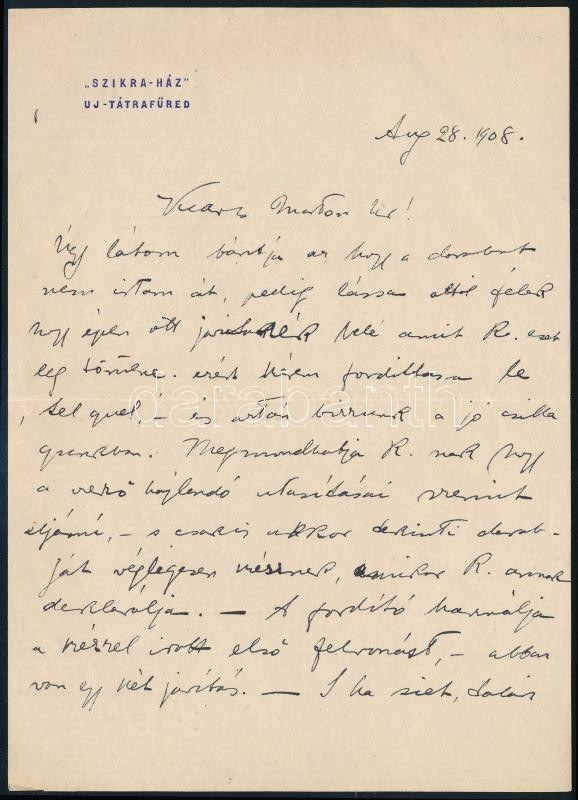 „SZIKRA-HÁZ"
UJ-TÁTRAFÜRED
Aug 28. 1908.
Marton Ur!
Úgy látom bántja az hogy a darabot
nem irtam át, pedig lássa attól félek
hogy épen ott belé amit R. eset
leg törülne. ezért kérem fordittassa le
tel quel, – és aztán bizzunk a jó csilla
gunkban. Megmondhatja R. nak hogy
a szerző hajlandó utasításai szerint
eljárni, – s csakis akkor tekinti darab-
ját véglegesen késznek, amikor R. annak
deklarálja. — A fordító használja
a kézzel irott első felvonást, – abban
van egy két javítás. — S ha siet, talán
darabanth